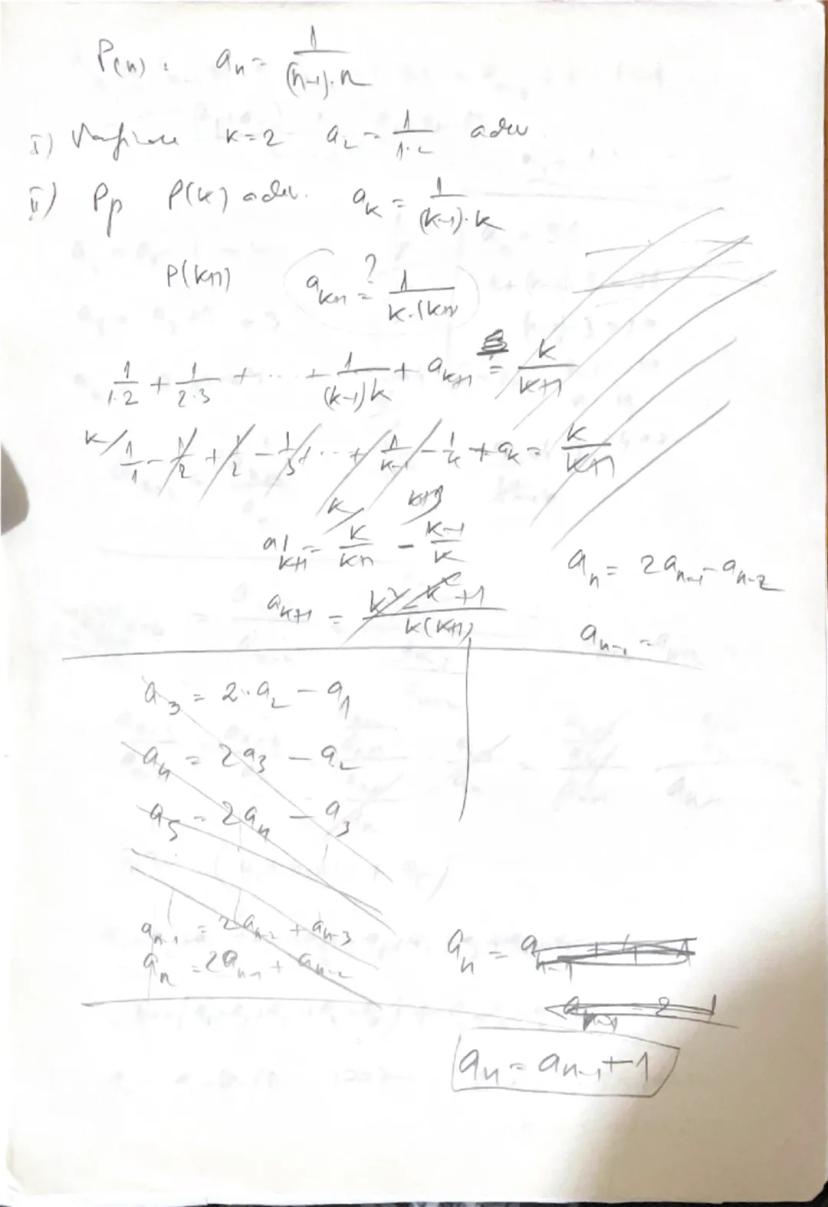 P(n): a_n = 1/((n-1)·n)
I) Verificare k=2 a_2 = 1/(1·2) adev
II) Pp P(k) adev. a_k = 1/((k-1)·k)
P(k+1) a_{k+1} ?= 1/(k·(k+1)
1/(1·2) + 1/(2·3) + ... + 1/((k-1)k) + a_{k+1} = k/(k+1)
k/ 1/1 - 1/2 + 1/2 - 1/3 + ... + 1/(k-1) - 1/k + a_k = k/(k+1)
a_{k+1} = k/(k+1) - (k-1)/k
a_n = 2a_{n-1} - a_{n-2}
a_{k+1} = (k² - k² + 1)/(k(k+1))
a_{n-1} =
a_3 = 2·a_2 - a_1
a_4 = 2a_3 - a_2
a_5 = 2a_4 - a_3
a_{n-1} = 2a_{n-2} + a_{n-3}
a_n = 2a_{n-1} + a_{n-2}
a_n = a_{n-1}
a_n = a_{n-1} + 1